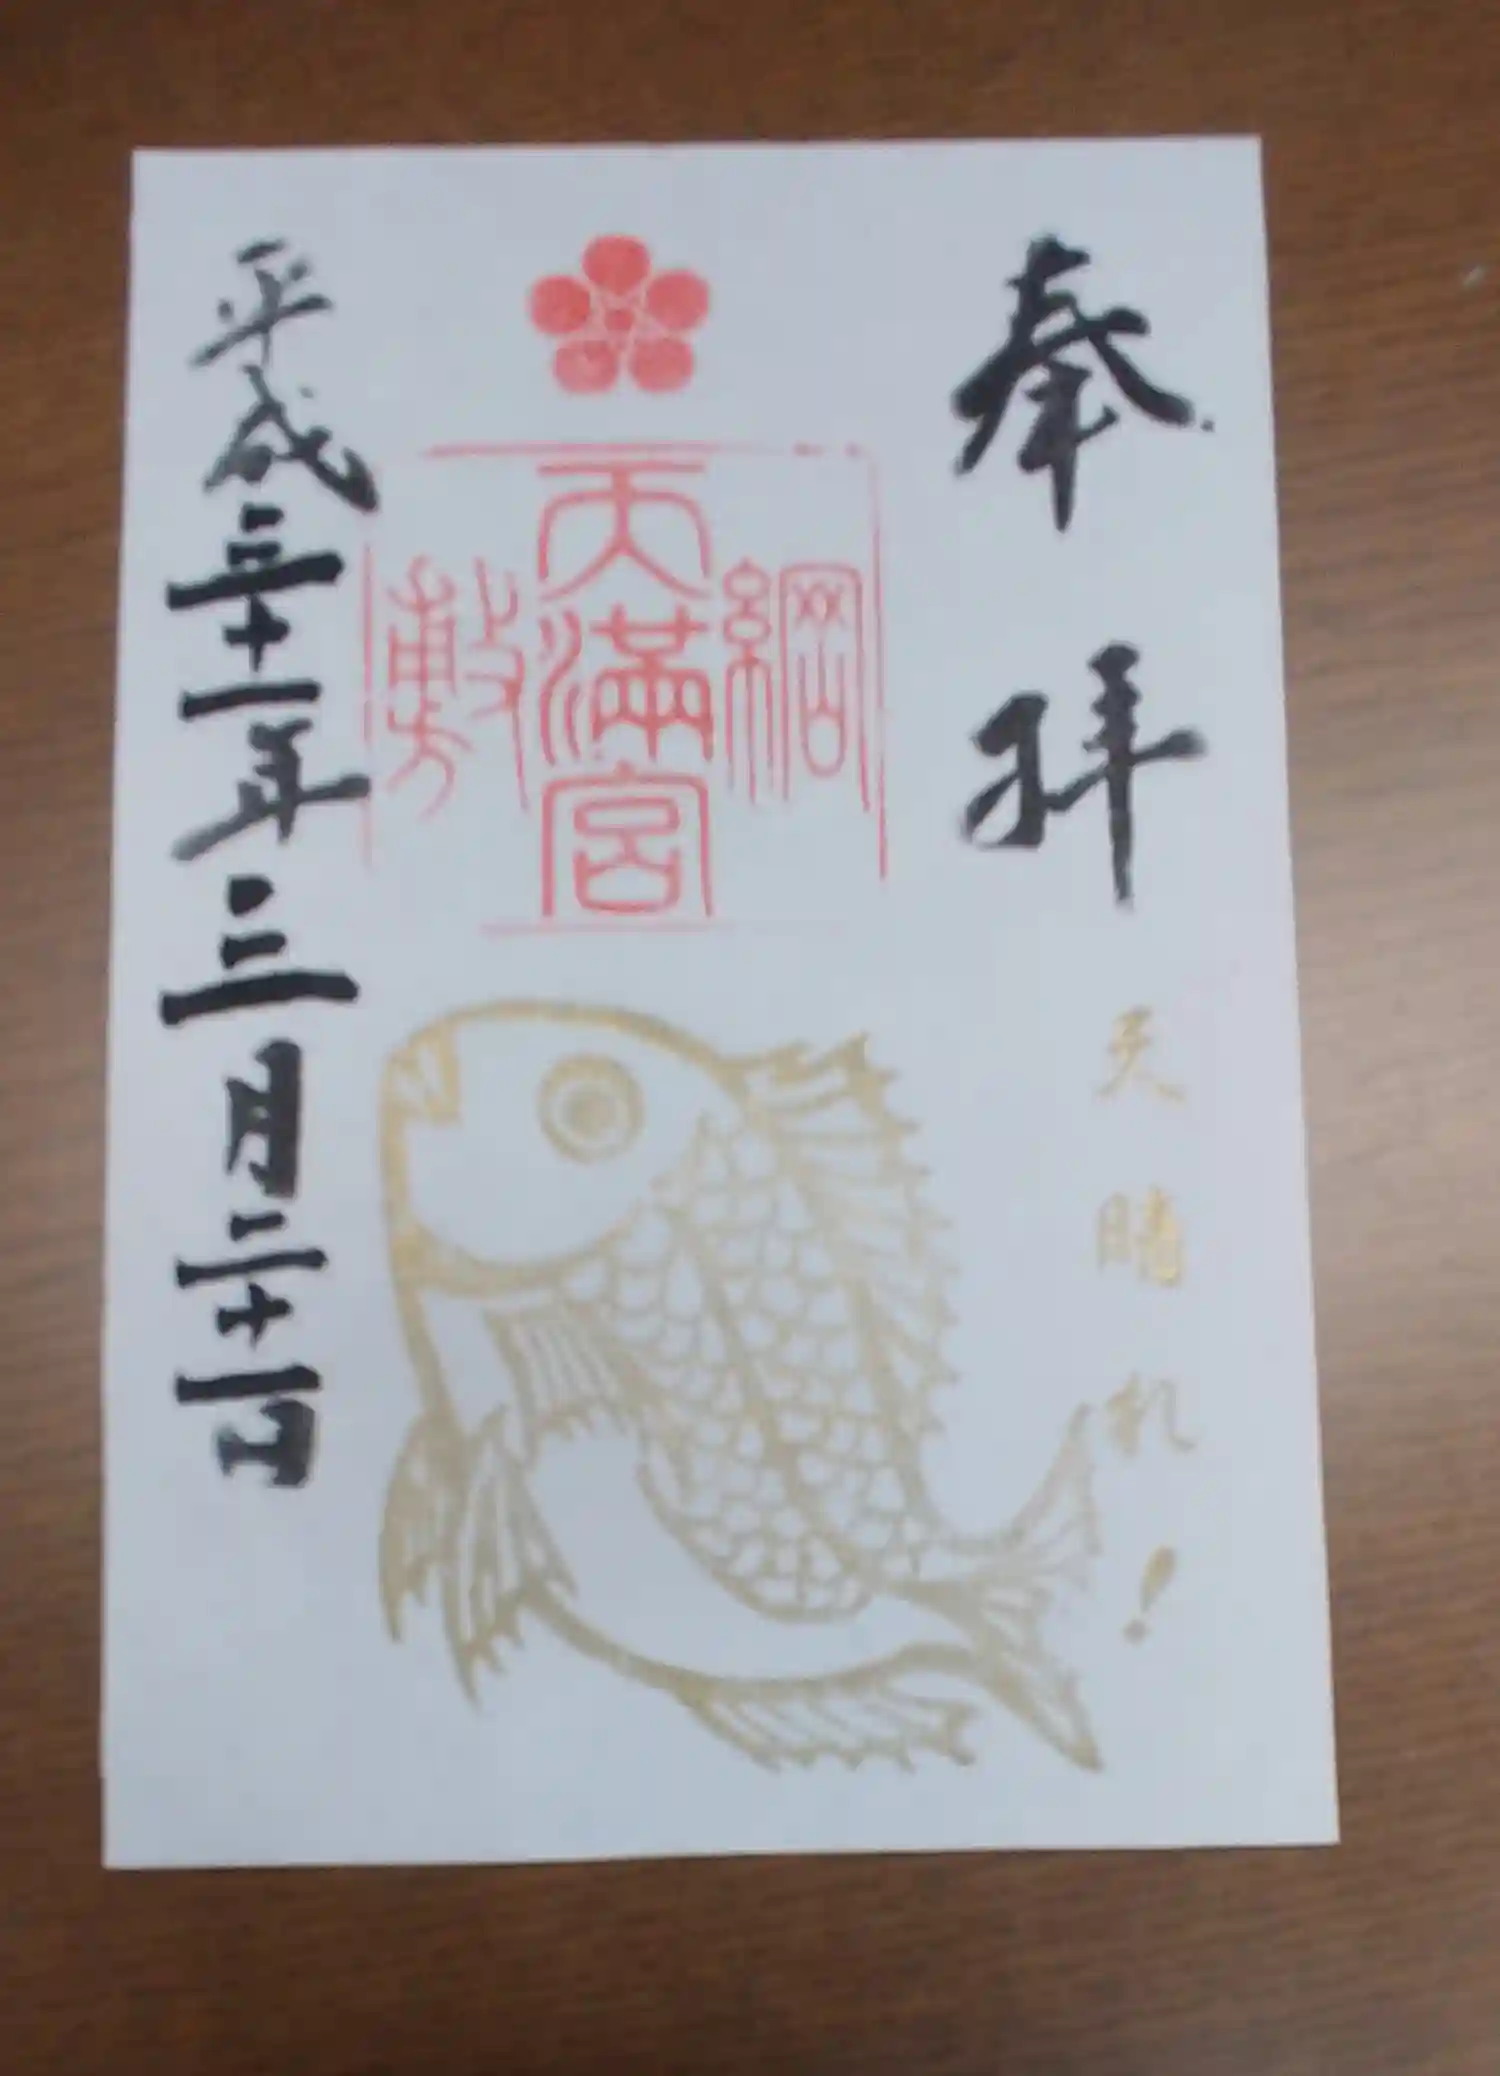 奉拝
天晴れ！
綱
天満宮
敷
平成三十一年三月二十一日